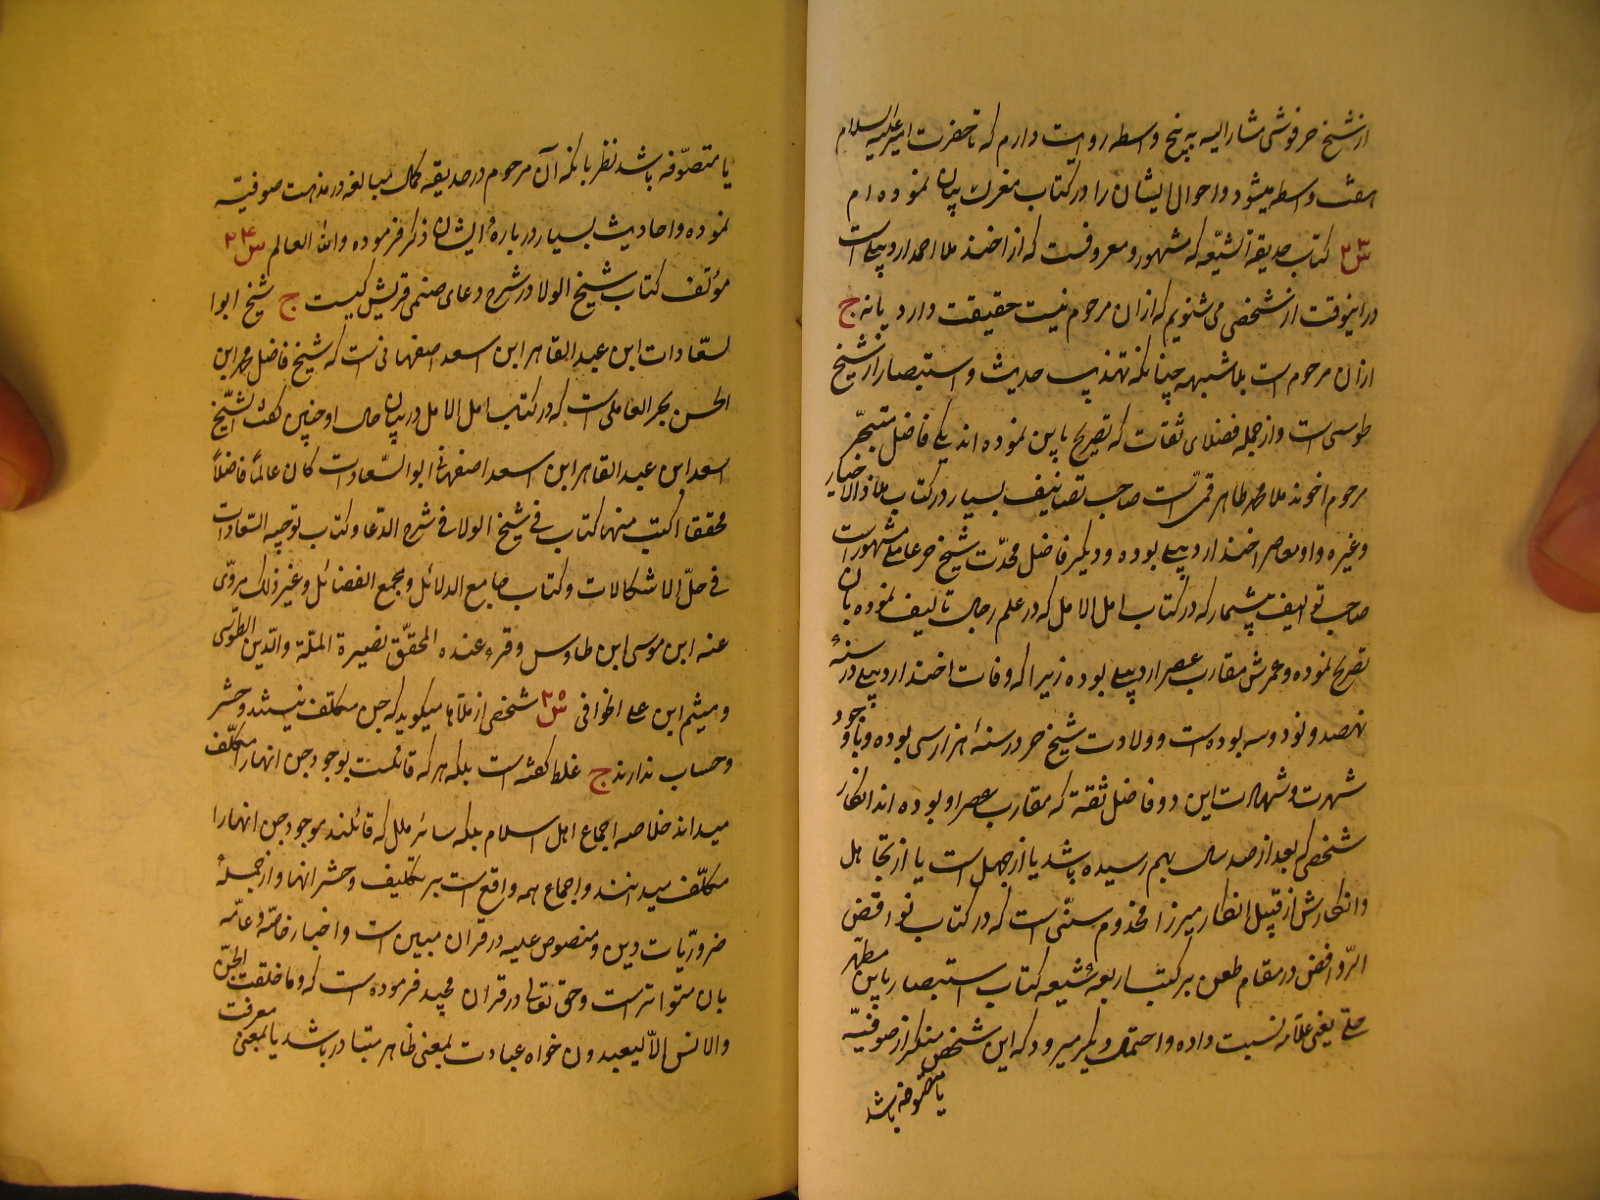 از شیخ حرفوشی مشار الیه به پنج واسطه روایت دارم که تا حضرت امیر علیه السلام
هفت واسطه میشود و احوال ایشان را در کتاب بیان نموده ام
س۲۳ کتاب حدیقة الشیعه که مشهور و معروفست که از اخند ملا احمد اردبیلی است
در اینوقت از شخصی می شنویم که از ان مرحوم نیست حقیقت دارد یا نه ج
از ان مرحوم است بلا شبهه چنانکه تهذیب حدیث و استبصار از شیخ
طوسی است و از جمله فضلای ثقات که تصریح باین نموده اند یکی فاضل متبحّر
مرحوم اخوند ملا محمد طاهر قمی است صاحب تصانیف بسیار در کتاب ملاذ الاخیار
و غیره و او معاصر اخند اردبیلی بوده و دیگر فاضل محدّث شیخ حر عاملی مشهور است
صاحب توالیف بیشمار که در کتاب امل الامل که در علم رجال تالیف نموده بان
تصریح نموده و عمرش مقارب عصر اردبیلی بوده زیرا که وفات اخند اردبیلی در سنهٔ
نهصد و نود و سه بوده است و ولادت شیخ حر در سنهٔ هزار سی بوده و با وجود
شهرت و شهادت این دو فاضل ثقة که مقارب عصر او بوده اند انکار
شخصی که بعد از صد سال بهم رسیده باشد یا از جهل است یا از تجاهل
و انکارش از قبیل انکار میرزا مخدوم سنّی است که در کتاب نواقض
الروافض در مقام طعن بر کتب اربعهٔ شیعه کتاب استبصار باین مطهّر
حلّی یعنی علامه نسبت داده و احتمال دیگر میرود که این شخص منکر از صوفیّه
یا متصوفه باشد
یا متصوّفه باشد نظر بانکه آن مرحوم در حدیقه کمال مبالغه در مذمت صوفیّه
نموده و احادیث بسیار در بارهٔ ایشان ذکر فرموده والله العالم س۲۴
مؤلف کتاب شیخ الولا در شرح دعای صنمی قریش کیست ج شیخ ابوا
لسّعادات ابن عبد القاهر ابن اسعد اصفهانی است که شیخ فاضل محمد ابن
الحسن بحر العاملی است که در کتاب امل الامل در بیان حال او چنین گفته الشّیخ
اسعد ابن عبد القاهر ابن اسعد اصفهانی ابو السّعادات کان عالماً فاضلاً
محققا اکتب منها کتاب فی شیخ الولا فی شرح الدّعا و کتاب توجیه السّعادات
فی حلّ الاشکالات و کتاب جامع الدلائل و مجمع الفضائل و غیر ذلک مروّی
عنه ابن موسی ابن طاوس و قرء عنده المحقّق نصیرة الملّة والدّین الطوسی
و میثم ابن علی س۲۵ شخصی از ملاها میگوید که جن مکلّف نیستند و حشر
و حساب ندارند ج غلط گفته است بلکه هر که قائلست بوجود جن انهارا مکلّف
میداند خلاصه اجماع اهل اسلام بلکه سائر ملل که قائلند بوجود جن انهارا
مکلّف میدانند و اجماع همه واقع است بر تکلیف و حشر انها و از جملهٔ
ضروریّات دین و منصوص علیه در قران مبین است و اخبار خاصّه و عامّه
بان متواتر است و حق تعالی در قران مجید فرموده است که و ما خلقت الجنّ
والانس الاّ لیعبدون خواه عبادت بمعنی ظاهر متبادر باشد یا بمعنی معرفت